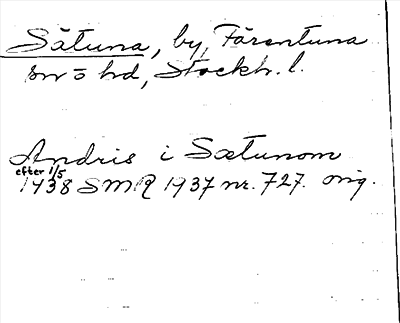 Sätuna, by, Färentuna
sn o hd, Stockh. l.
Andris i Sætunom
efter 1/5
1438 SMR 1937 nr. 727. orig.